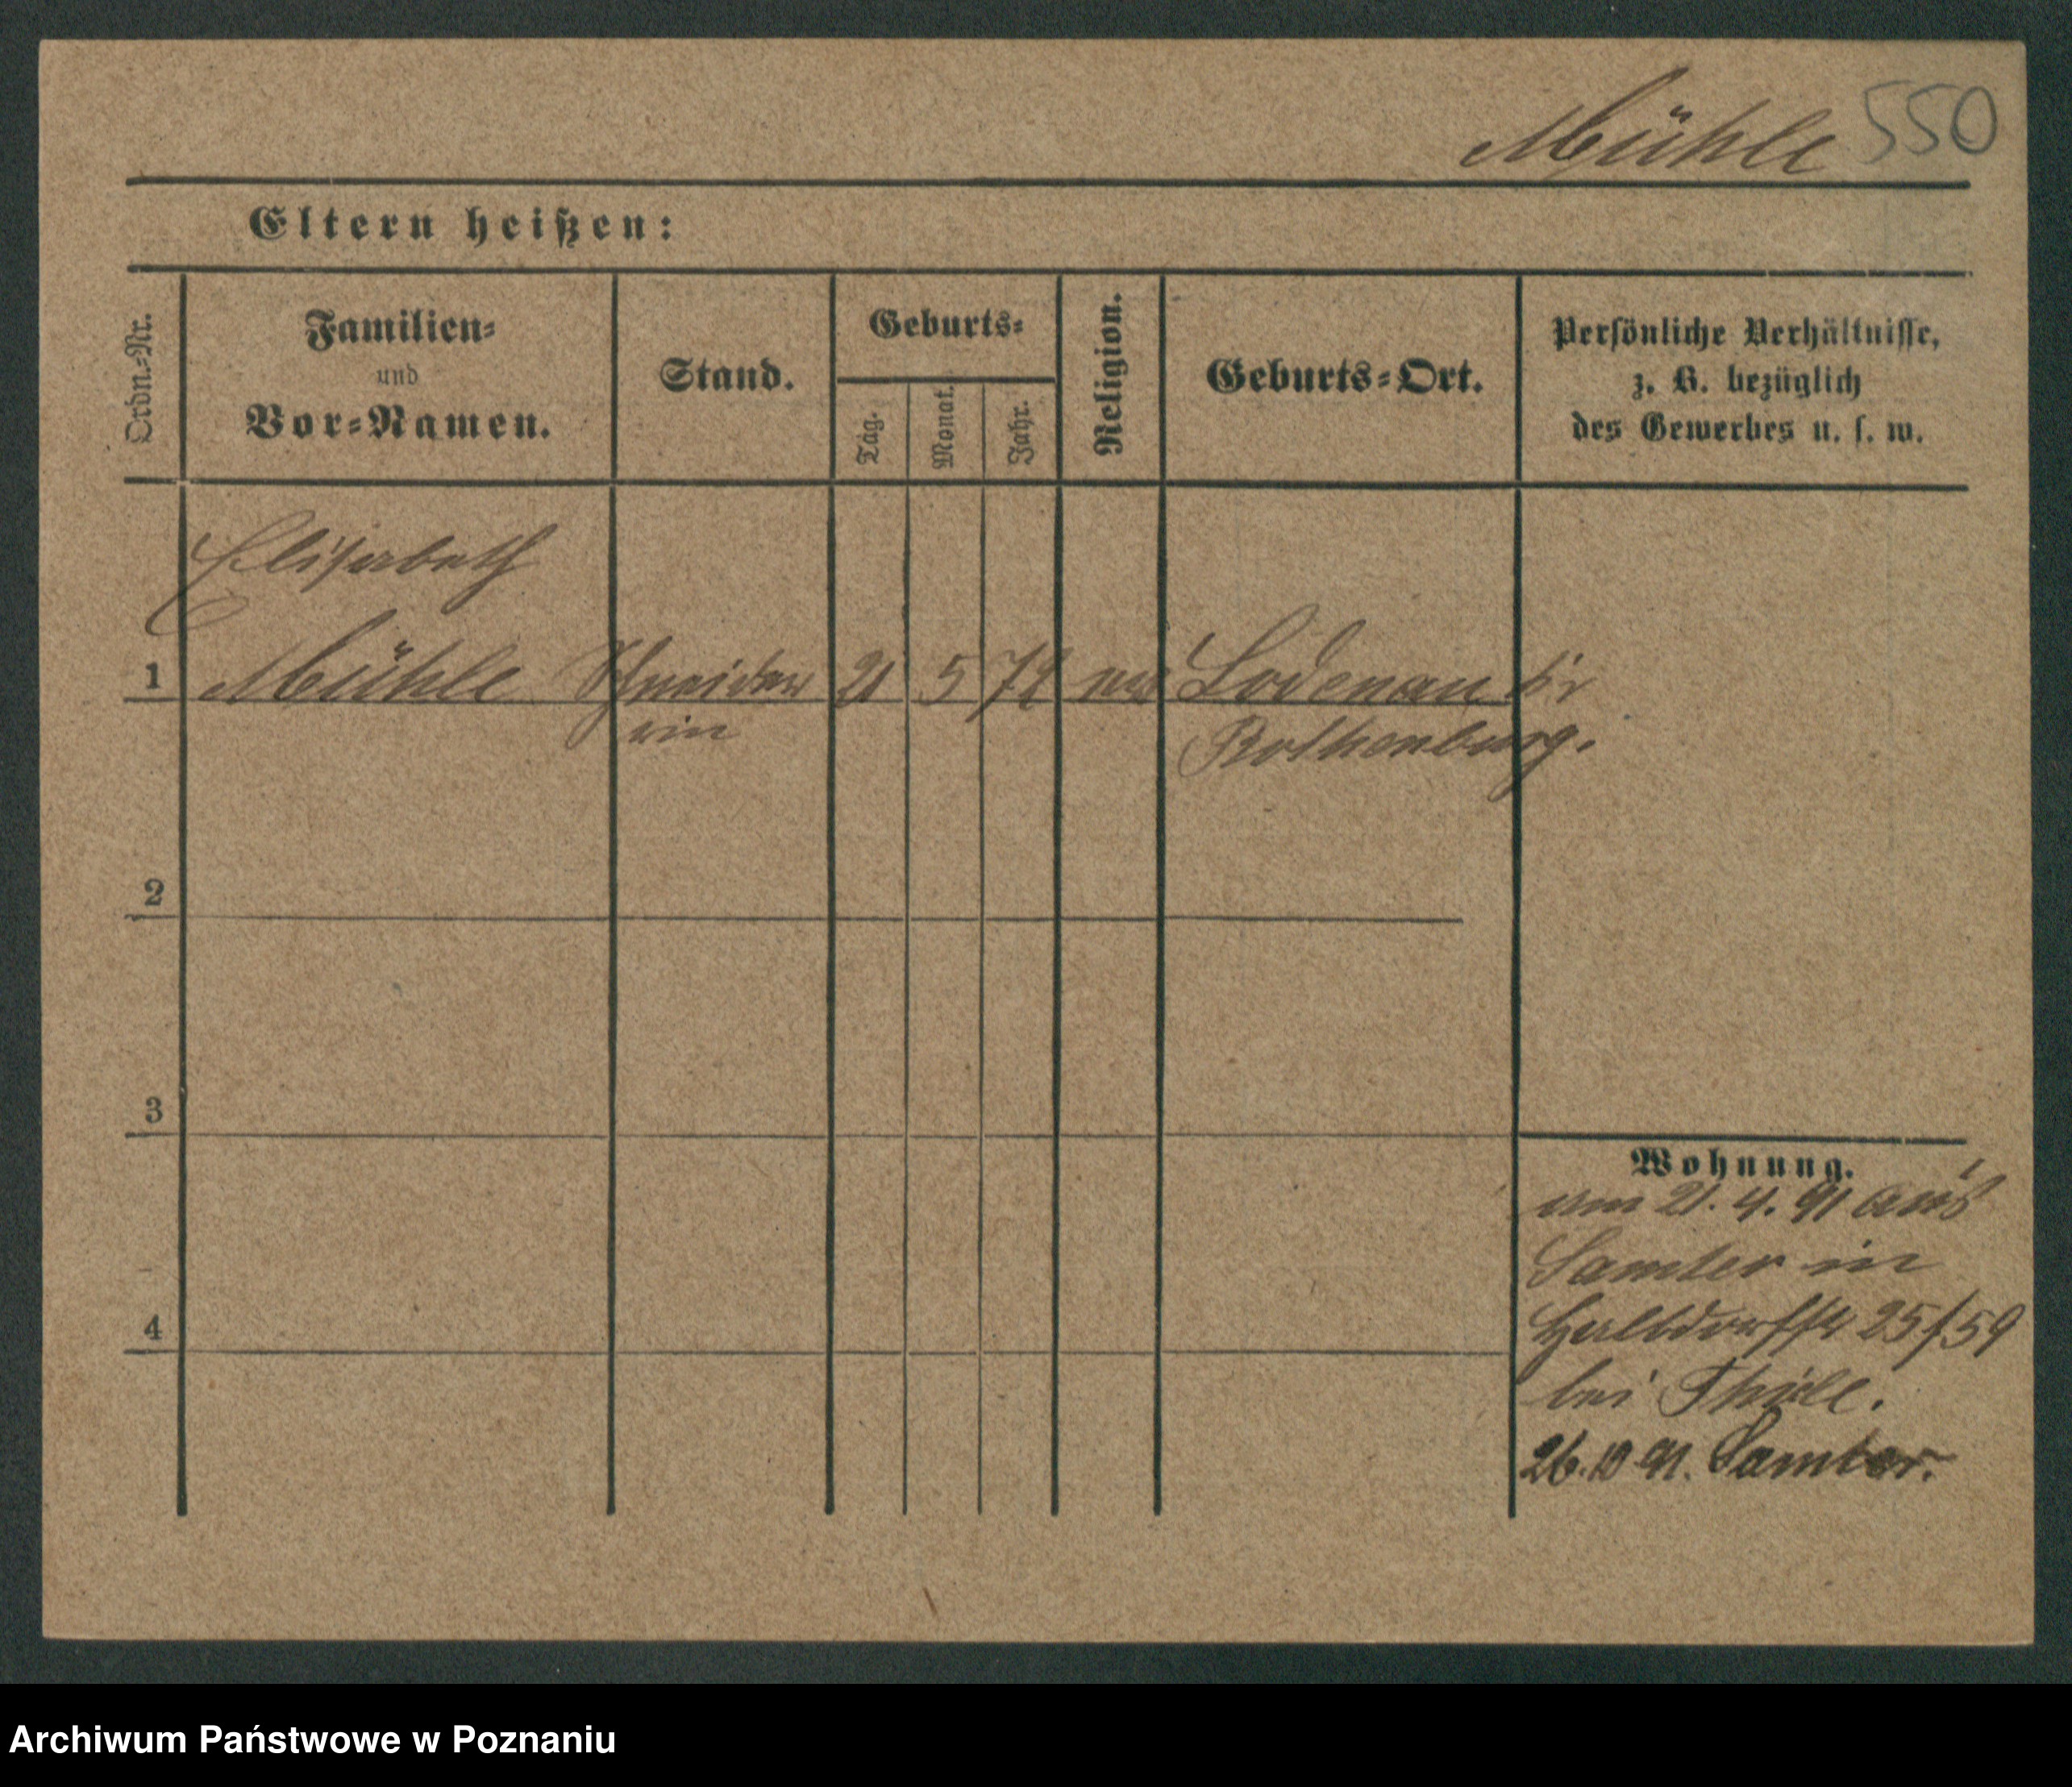 Mühle 550
Eltern heißen:
Ordn.=Nr.
Familien=
und
Vor=Namen.
Stand.
Geburts=
Tag.
Monat.
Jahr.
Religion.
Geburts=Ort.
Persönliche Verhältnisse,
z. B. bezüglich
des Gewerbes u. s. w.
Elisabeth
1 Mühle Schneider 21 5 72 Lodenau Kr
rin Rothenburg.
2
3
4
Wohnung.
am 21. 4. 91 aus
Samter in
Halbdorfstr 25/59
bei Thiele.
26.10 91. Samter.
Archiwum Państwowe w Poznaniu